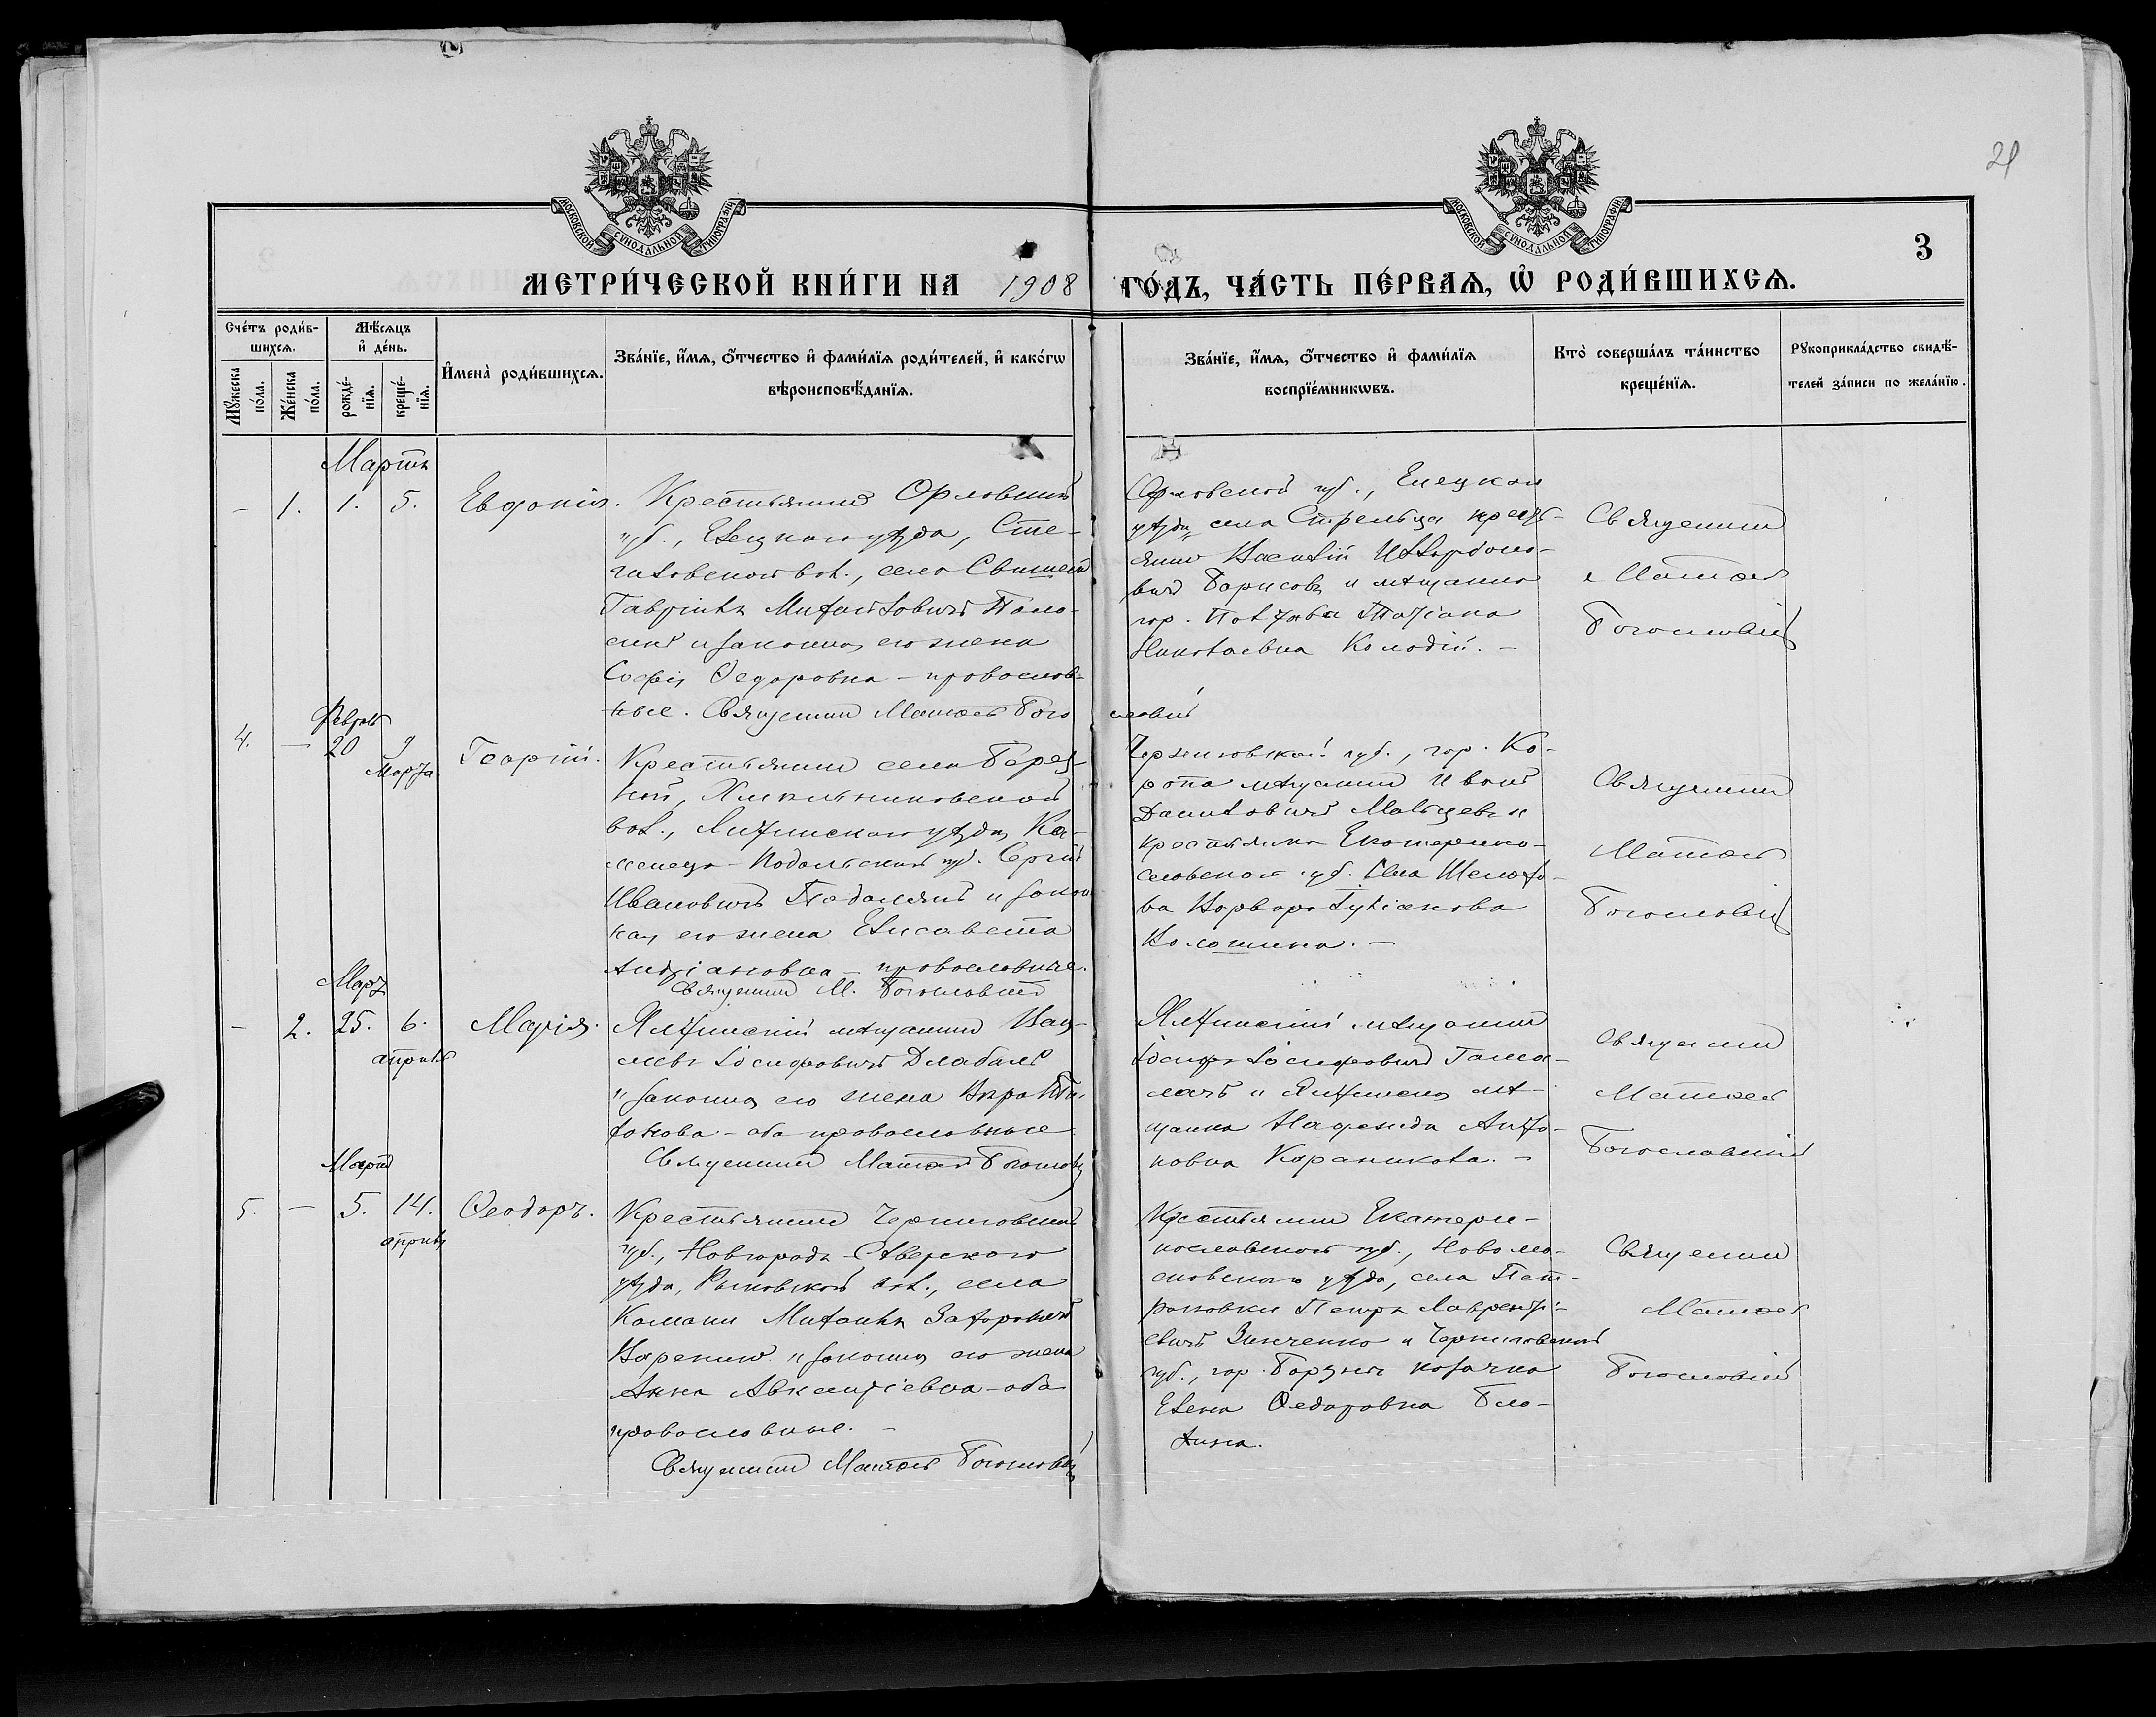 21
3
МОСКОВСКОЙ СѴНОДАЛЬНОЙ ТИПОГРАФІИ
МОСКОВСКОЙ СѴНОДАЛЬНОЙ ТИПОГРАФІИ
МЕТРИ́ЧЕСКОЙ КНИ́ГИ НА 1908 ГО́ДЪ, ЧА́СТЬ ПЕ́РВАѦ, Ѽ РОДИ́ВШИХСѦ.
Сче́тъ роди́в-
шихсѧ.
Мѣ́сѧцъ
и҆ де́нь.
И҆мена̀ роди́вшихсѧ.
Зва́нїе, и҆́мѧ, ѻ҆́тчество и҆ фами́лїѧ роди́телей, и҆ како́гѡ
вѣроисповѣ́данїѧ.
Зва́нїе, и҆́мѧ, ѻ҆́тчество и҆ фами́лїѧ
воспрїе́мникѡвъ.
Кто̀ соверша́лъ та́инство
креще́нїѧ.
Рꙋкоприкла́дство свидѣ́-
телей за́писи по жела́нїю.
Мꙋ́жеска
по́ла.
Же́нска
по́ла.
рожде́-
нїѧ.
креще́-
нїѧ.
Мартъ
- 1. 1. 5. Евдокія.
Крестьянинъ Орловской
губ., Елецкаго уѣзда, Сте-
галовской вол., село
Гавріилъ Михайловичъ
и законная его жена
Софія Ѳедоровна - православ-
ные. Священникъ Матѳей Бого
словскій
Орловской губ., Елецкаго
уѣзда, села Стрельца крест-
янинъ Василій
вичъ Борисовъ и мѣщанка
гор. Татіана
Николаевна Колодій. -
Священникъ
Матѳей
Богословскій
Феврал
4. - 20 9 Георгій.
Марта
Крестьянинъ села Берез-
ной, Хмельниковской
вол., Литинскаго уѣзда, Ка-
менецъ-Подольской губ. Сергій
Ивановичъ и закон-
ная его жена Елисавета
Андріановна - православные.
Священникъ М. Богословскій
Черниговской губ., гор. Ко-
ропа мѣщанинъ Иванъ
Даниловичъ Мальцевъ и
крестьянка Екатерино-
славской губ. села
ва Варвара Лукіанова
Колошина. -
Священникъ
Матѳей
Богословскій
Март
- 2. 25. 6. Марія.
апрѣля
Ялтинскій мѣщанинъ Вац-
лавъ Іосифовичъ Длабалъ
и законная его жена Вѣра
- оба православные
Священникъ Матѳей Богословск
Ялтинскій мѣщанинъ
Іосифъ Іосифовичъ
и Ялтинская мѣ-
щанка Надежда Анто-
новна
Священникъ
Матѳей
Богословскій
Мартъ
5. - 5. 14. Ѳеодоръ.
апрѣля
Крестьянинъ Черниговской
губ., Новгородъ-Сѣверскаго
уѣзда, Рыковской вол., села
Камани Михаилъ Захаровичъ
и законная его жена
Анна Авксентіевна - оба
православные. -
Священникъ Матѳей Богословск
Крестьянинъ Екатери-
нославской губ., Новомо-
сковскаго уѣзда, села Пет-
раковки Петръ Лаврентi-
евичъ Зинченко и Черниговской
губ., гор. Борзны козачка
Елена Ѳедоровна Бло-
хина.
Священникъ
Матѳей
Богословскій